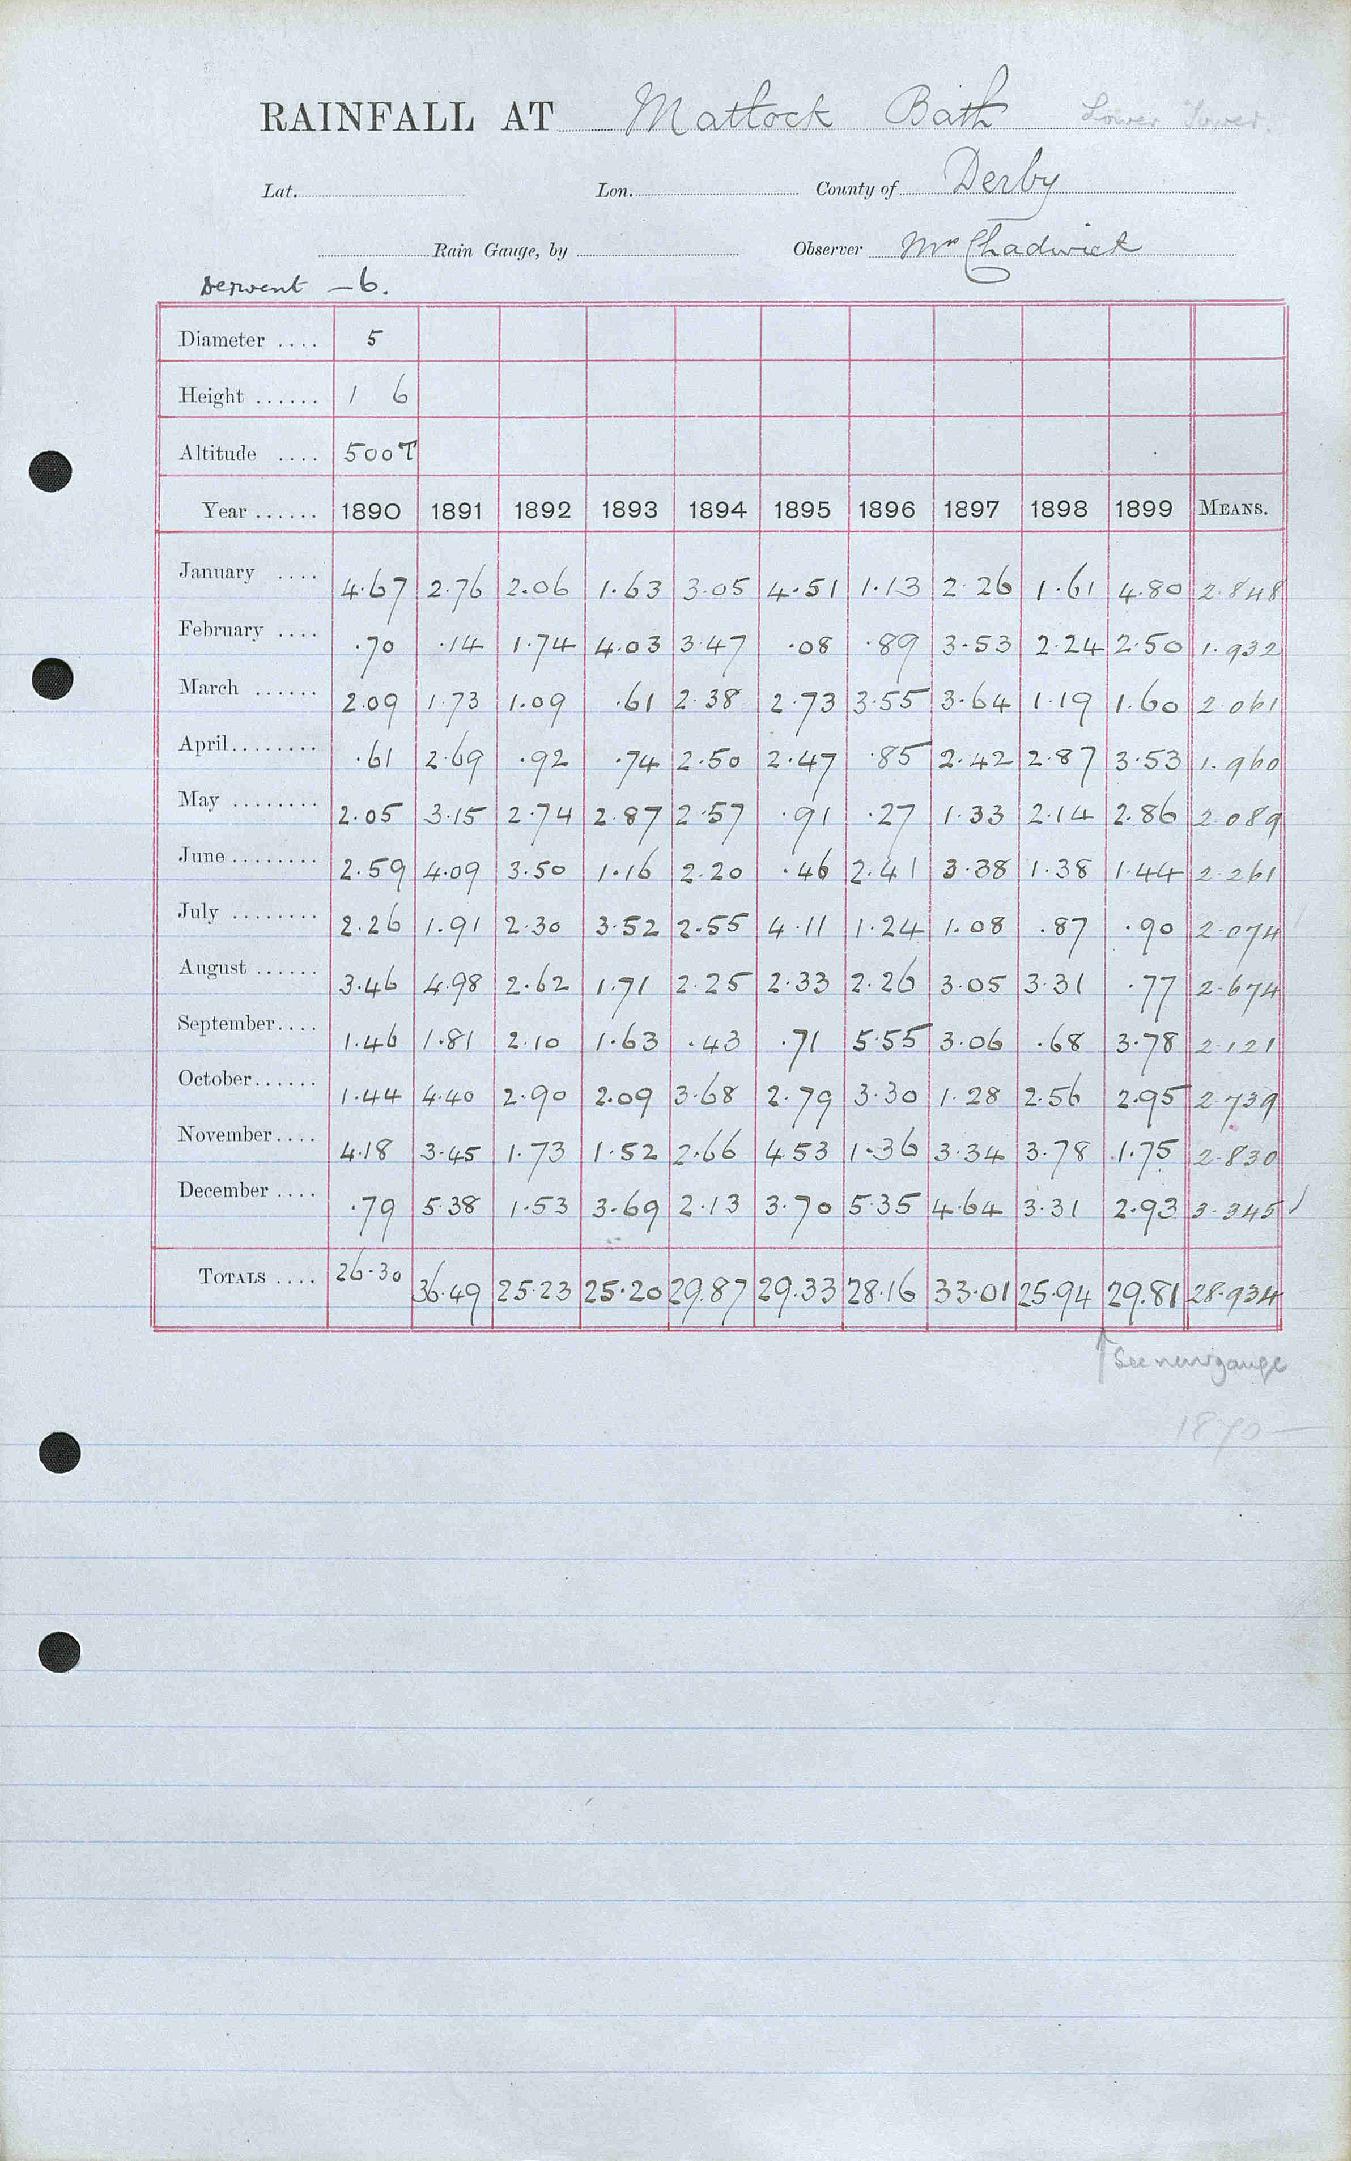 RAINFALL AT Matlock Bath Lower Tower.
Lat. Lon. County of Derby
Rain Gauge, by Observer Mrs Chadwick
Derwent - 6.
Diameter .... 5
Height ...... 1 6
Altitude .... 500 T
Year ...... 1890 1891 1892 1893 1894 1895 1896 1897 1898 1899 MEANS.
January .... 4.67 2.76 2.06 1.63 3.05 4.51 1.13 2.26 1.61 4.80 2.848
February .... .70 .14 1.74 4.03 3.47 .08 .89 3.53 2.24 2.50 1.932
March ...... 2.09 1.73 1.09 .61 2.38 2.73 3.55 3.64 1.19 1.60 2.061
April........ .61 2.69 .92 .74 2.50 2.47 .85 2.42 2.87 3.53 1.960
May ........ 2.05 3.15 2.74 2.87 2.57 .91 .27 1.33 2.14 2.86 2.089
June ........ 2.59 4.09 3.50 1.16 2.20 .46 2.41 3.38 1.38 1.44 2.261
July ........ 2.26 1.91 2.30 3.52 2.55 4.11 1.24 1.08 .87 .90 2.074
August ...... 3.46 4.98 2.62 1.71 2.25 2.33 2.26 3.05 3.31 .77 2.674
September.... 1.46 1.81 2.10 1.63 .43 .71 5.55 3.06 .68 3.78 2.121
October...... 1.44 4.40 2.90 2.09 3.68 2.79 3.30 1.28 2.56 2.95 2.739
November.... 4.18 3.45 1.73 1.52 2.66 4.53 1.36 3.34 3.78 1.75 2.830
December .... .79 5.38 1.53 3.69 2.13 3.70 5.35 4.64 3.31 2.93 3.345
TOTALS .... 26.30 36.49 25.23 25.20 29.87 29.33 28.16 33.01 25.94 29.81 28.934
↑ See new gauge
1870 —